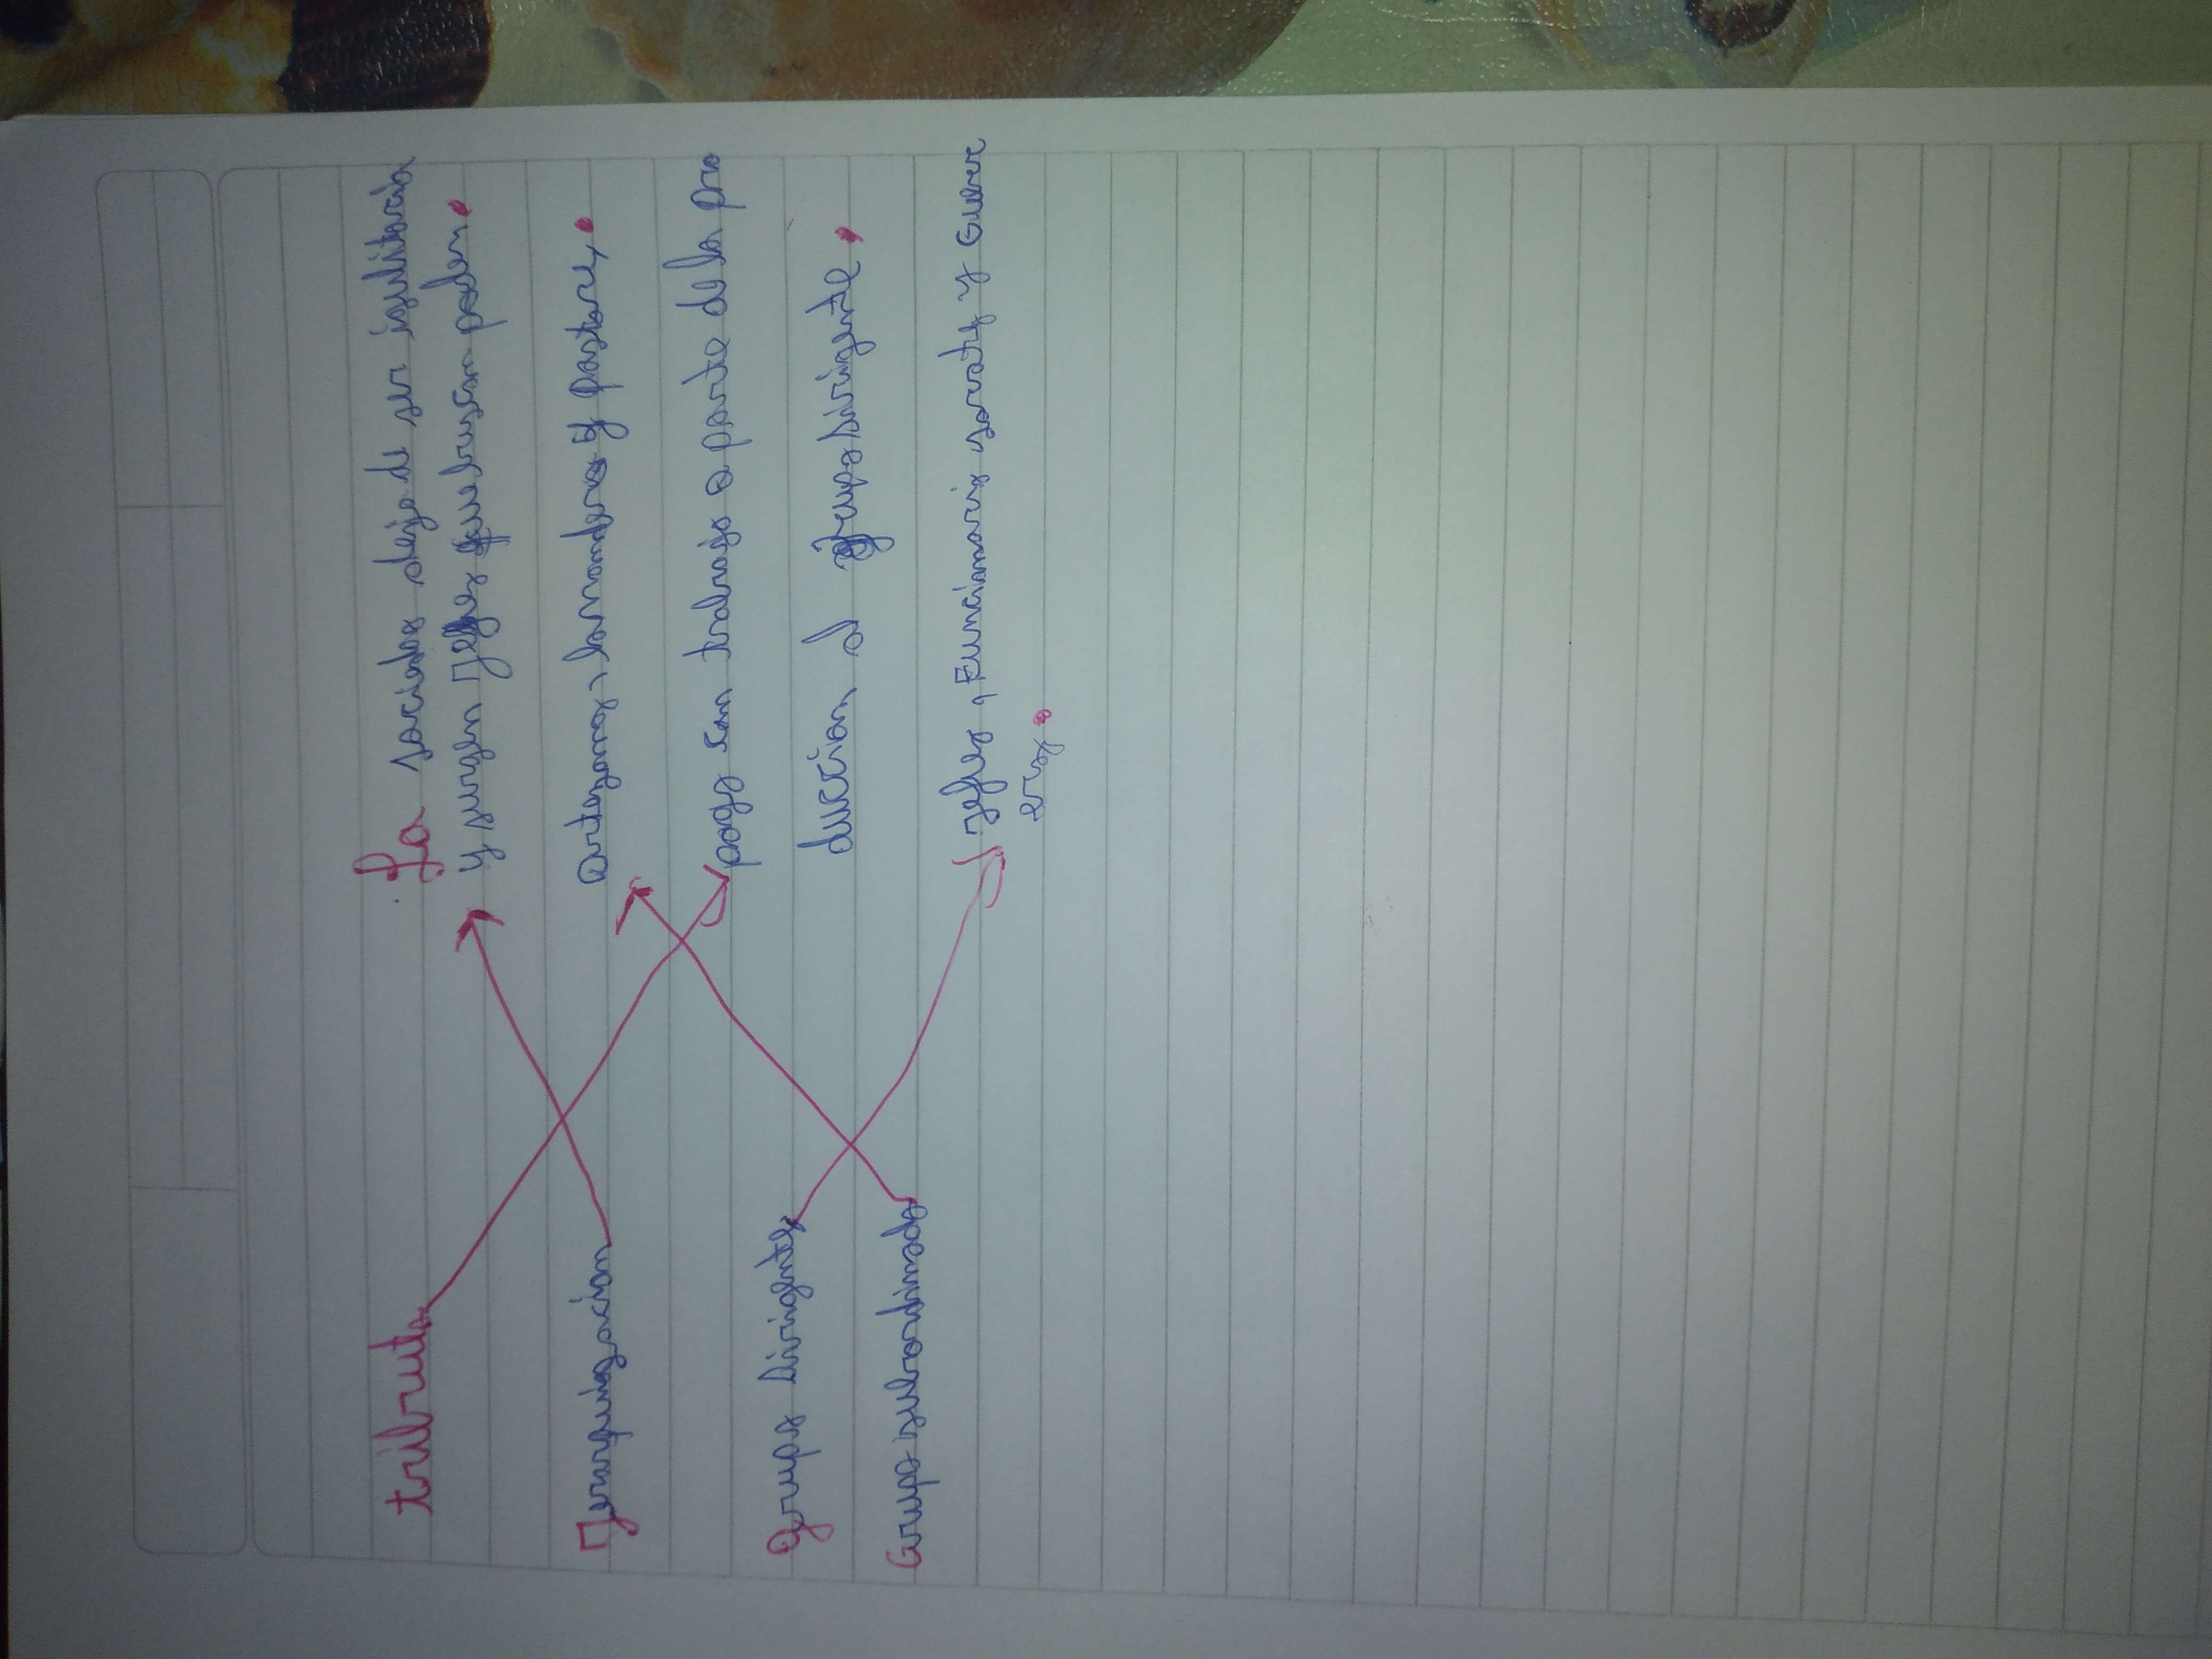 tributo
Jerarquización
Grupos dirigentes
Grupos subordinados
La sociedad dejo de ser igualitaria
y surgen Jefes que buscan poder.
Artesanos, y pastores.
pago con trabajo o parte de la pro
ducción al grupo dirigente.
Jefes, Funcionarios y Guerr
eros.